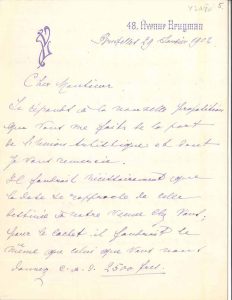 48, Avenue Brugman
Bruxelles 29 Janvier 1902
Cher Monsieur
Je réponds à la nouvelle proposition
que vous me faites de la part
de l'Union Artistique et dont
je vous remercie.
Il faudrait nécessairement que
la date se rapproche de celle
destinée à notre venue chez vous,
pour le cachet il faudrait le
même que celui que vous nous
donnez c.a.d. 2500 frcs.